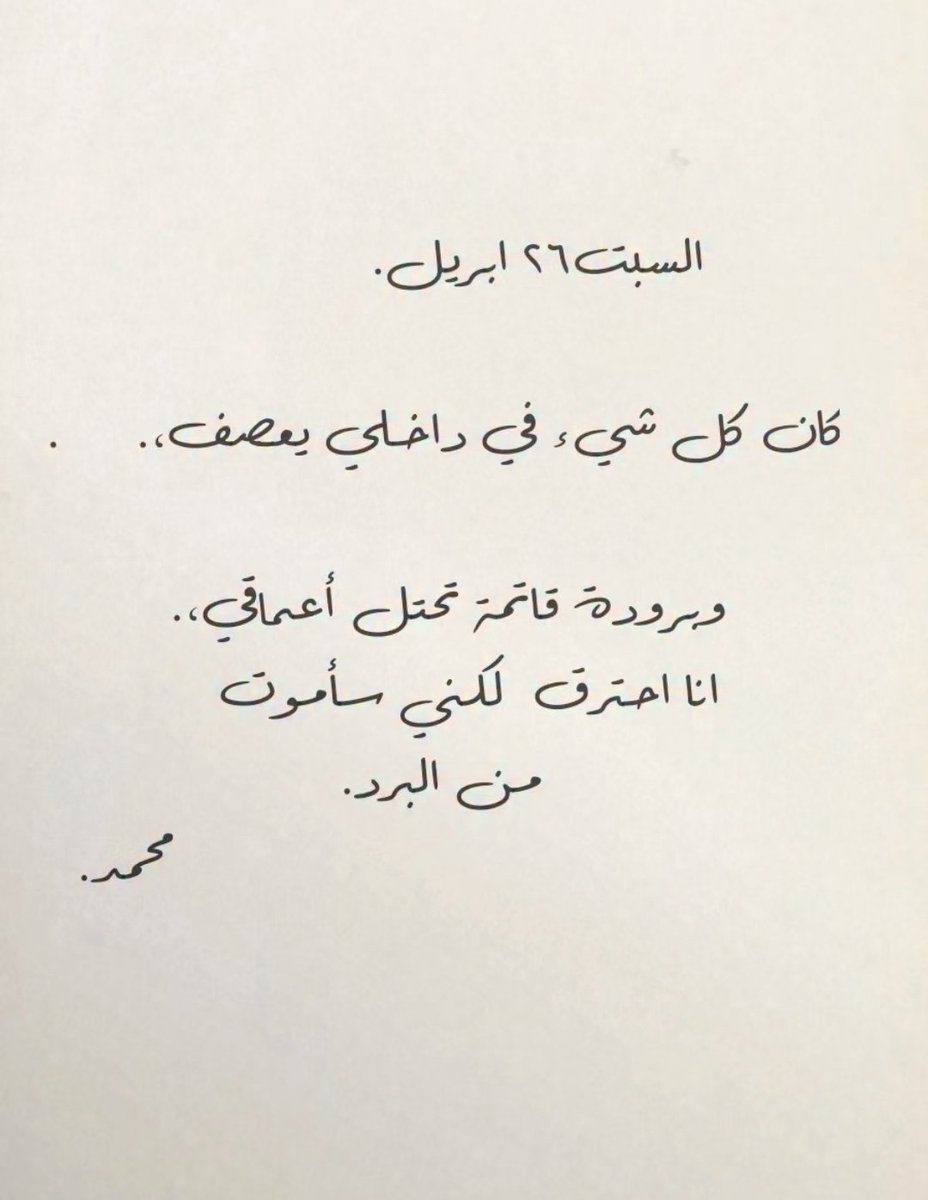 السبت ٢٦ ابريل.
كان كل شيء في داخلي يعصف،. .
وبرودة قاتمة تحتل أعماقي،.
انا احترق لكني سأموت
من البرد.
محمد.